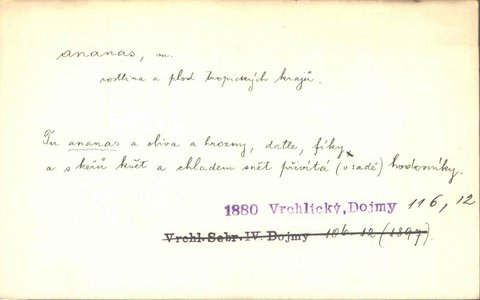 ananas, m.
rostlina a plod tropických krajů.
Tu ananas a oliva a hrozny, datle, fíky
a s keřů květ a chladem snět přivítá (v sadě) hodovníky.
1880 Vrchlický, Dojmy 116, 12
Vrchl. Sebr. IV. Dojmy 106. 12 (1897).